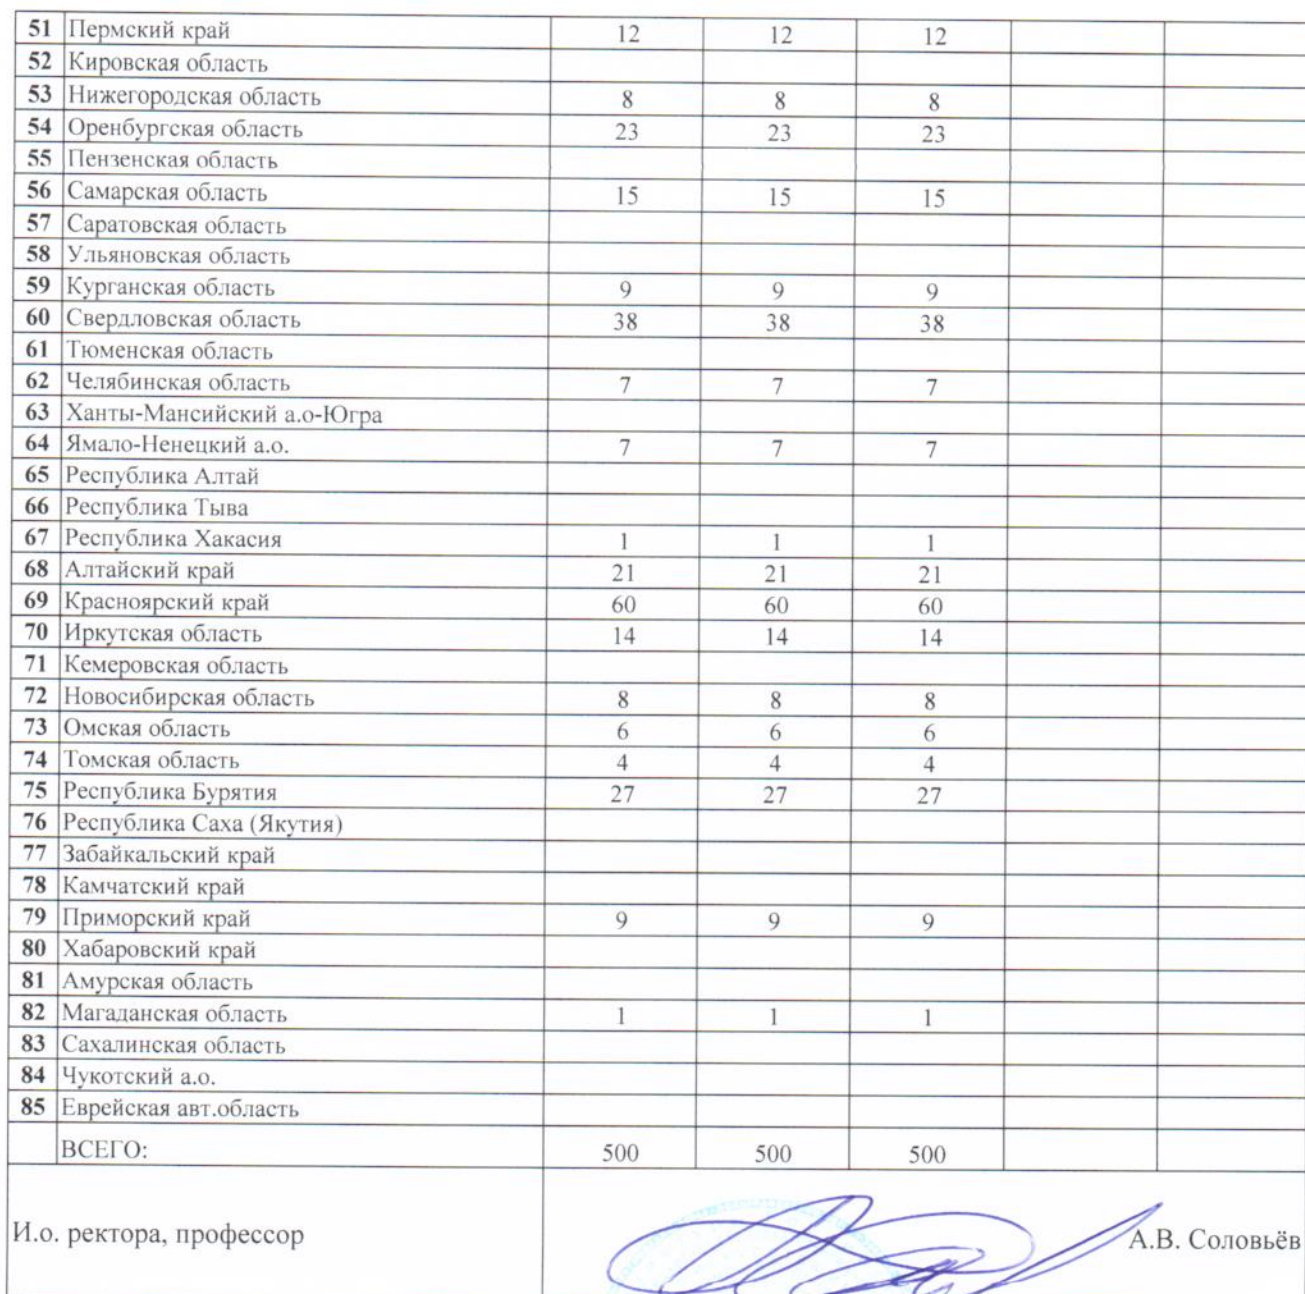 51 Пермский край 12 12 12
52 Кировская область
53 Нижегородская область 8 8 8
54 Оренбургская область 23 23 23
55 Пензенская область
56 Самарская область 15 15 15
57 Саратовская область
58 Ульяновская область
59 Курганская область 9 9 9
60 Свердловская область 38 38 38
61 Тюменская область
62 Челябинская область 7 7 7
63 Ханты-Мансийский а.о-Югра
64 Ямало-Ненецкий а.о. 7 7 7
65 Республика Алтай
66 Республика Тыва
67 Республика Хакасия 1 1 1
68 Алтайский край 21 21 21
69 Красноярский край 60 60 60
70 Иркутская область 14 14 14
71 Кемеровская область
72 Новосибирская область 8 8 8
73 Омская область 6 6 6
74 Томская область 4 4 4
75 Республика Бурятия 27 27 27
76 Республика Саха (Якутия)
77 Забайкальский край
78 Камчатский край
79 Приморский край 9 9 9
80 Хабаровский край
81 Амурская область
82 Магаданская область 1 1 1
83 Сахалинская область
84 Чукотский а.о.
85 Еврейская авт.область
ВСЕГО: 500 500 500
И.о. ректора, профессор А.В. Соловьёв